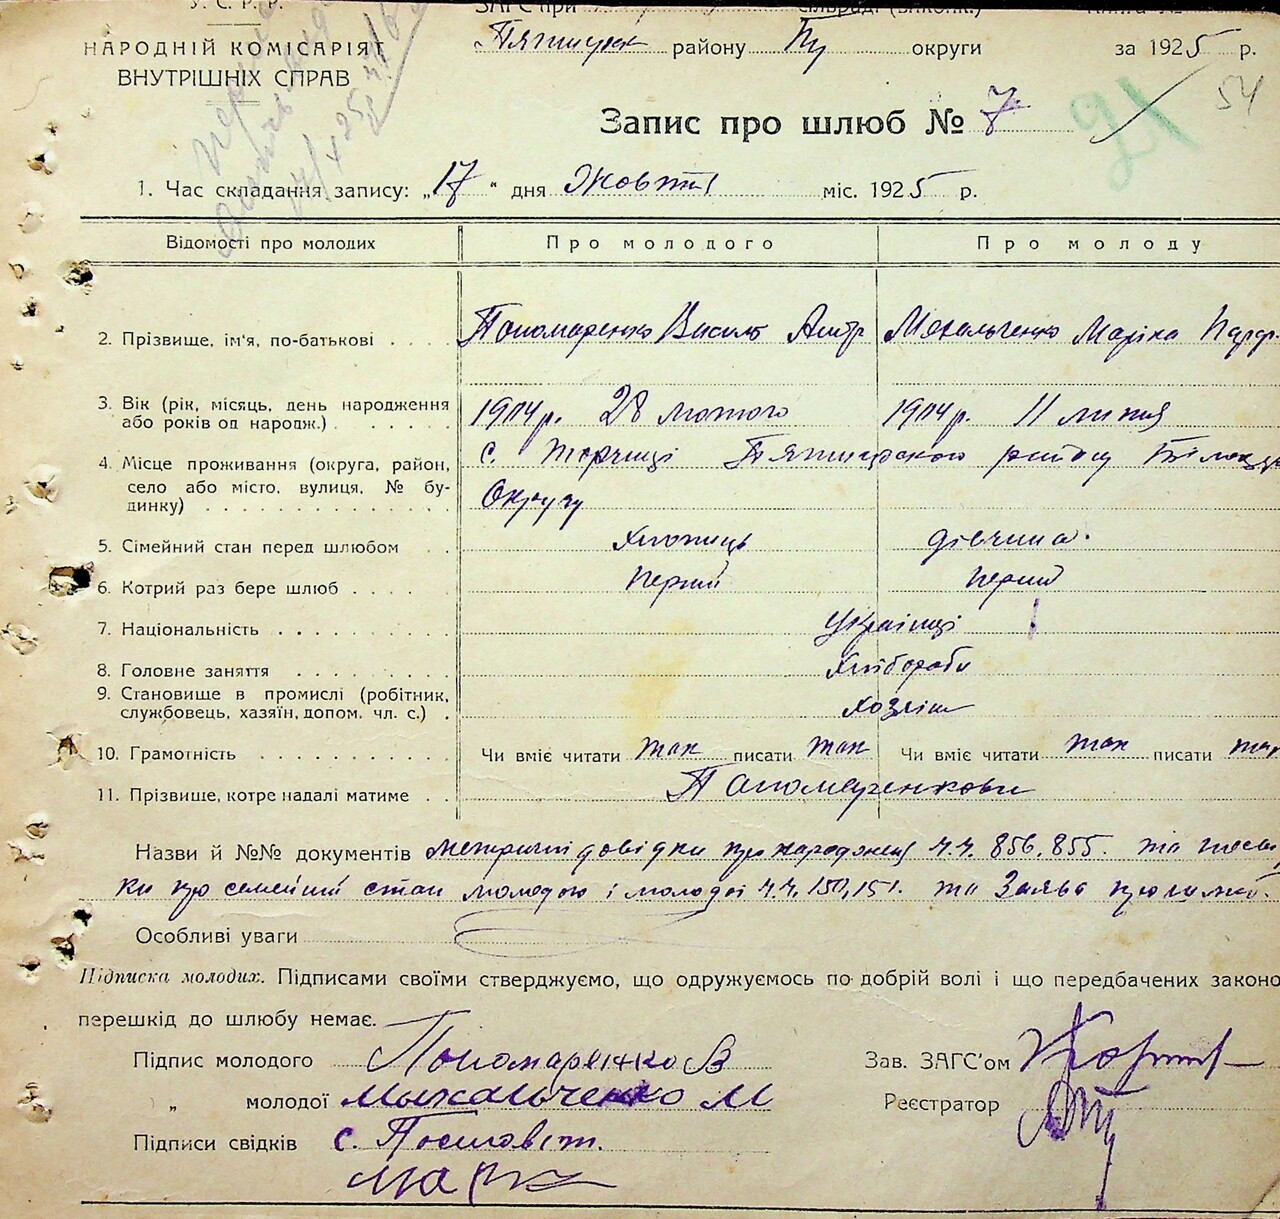 У. С. Р. Р.
ЗАГС при сільраді (викон.)
НАРОДНІЙ КОМІСАРІЯТ
ВНУТРІШНІХ СПРАВ
району округи за 1925 р.
54
Запис про шлюб № 7
21
1. Час складання запису: „17" дня Жовтня міс. 1925 р.
Відомості про молодих Про молодого Про молоду
2. Прізвище, ім'я, по-батькові . . . . Пономаренко Василь Михальченко Маріка
3. Вік (рік, місяць, день народження
або років од народж.) . . . . . . 1904 р. 28 лютого 1904 р. 11 липня
4. Місце проживання (округа, район,
село або місто, вулиця, № бу-
динку) . . . . . . . . . . . . . .
с. Торчиці Пятигорского району
Округу
5. Сімейний стан перед шлюбом . . Хлопець дівчина.
6. Котрий раз бере шлюб . . . . . Перший Перший
7. Національність . . . . . . . . . Українці
8. Головне заняття . . . . . . . . Хлібороби
9. Становище в промислі (робітник,
службовець, хазяїн, допом. чл. с.) .
10. Грамотність . . . . . . . . . . . Чи вміє читати так писати так Чи вміє читати так писати так
11. Прізвище, котре надалі матиме . . Пономаренкови
Назви й №№ документів метричні довідки про народження ч.ч. 856, 855. та
ки про семейний стан молодого і молодої ч.ч. 150, 151. та Заява
Особливі уваги
Підписка молодих. Підписами своїми стверджуємо, що одружуємось по добрій волі і що передбачених законо
перешкід до шлюбу немає.
Підпис молодого Пономарянко В
Зав. ЗАГС'ом
„ молодої Михальченко М
Реєстратор
Підписи свідків с.